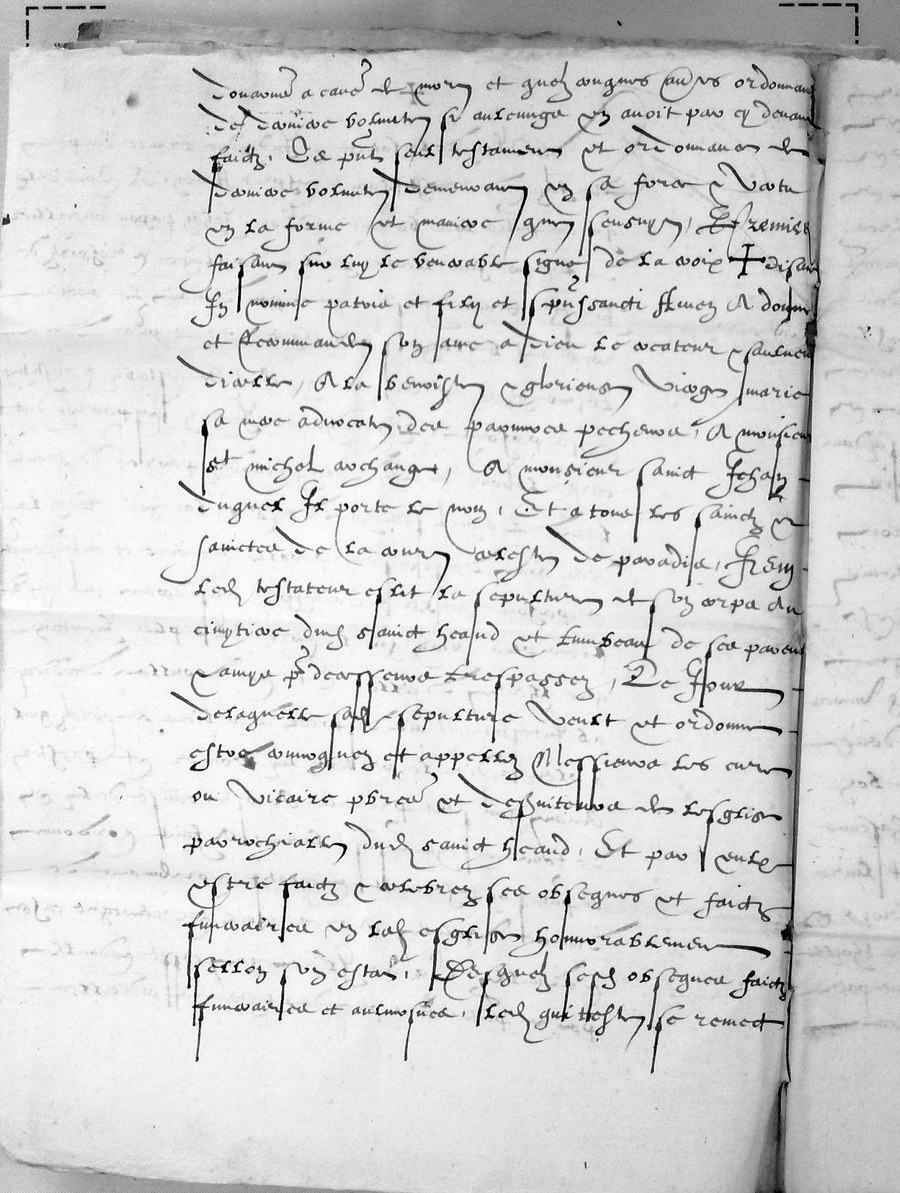 donations a cause de mort et quelzconques aultres ordonnan
de derniere volunte si aulcunge en avoit par cy devant
faictz, Ce pnt seul testament et ordonnance de
derniere volunte demeurant en sa force & vertu
en la forme et maniere que sensuyt, Et premier
faisant sur luy le venerable signe de la croix ✝ disant
In nomine patris et filij et spus sancti Amen A donne
et Recommande son ame a dieu le createur & saulveur
dicelle, A la benoiste & glorieuse vierge marie
sa mere advocate des pauvres pecheurs, A monsieur
st michel archange, A monsieur sainct Jehan
duquel Il porte le nom, Et a tous les sainctz &
sainctes de la court celeste de paradis, Item
led testateur eslit la sepulture de son corps au
cimytiere dud sainct heand et tumbeau de ses parens
& amys pr decesseurs trespassez, Le Jour
de laquelle sad sepulture veult et ordonne
estre convoquez et appellez Messieurs les cure
ou vicaire pbres et desserviteurs de lesglise
parrochialle dud sainct heand, Et par eulx
estre faictz & celebrez ses obseques et faictz
funeraires en lad esglise honnorablement
sellon son estat, Desquelz sesd obseques faictz
funeraires et aulmosnes, led testateur se remect